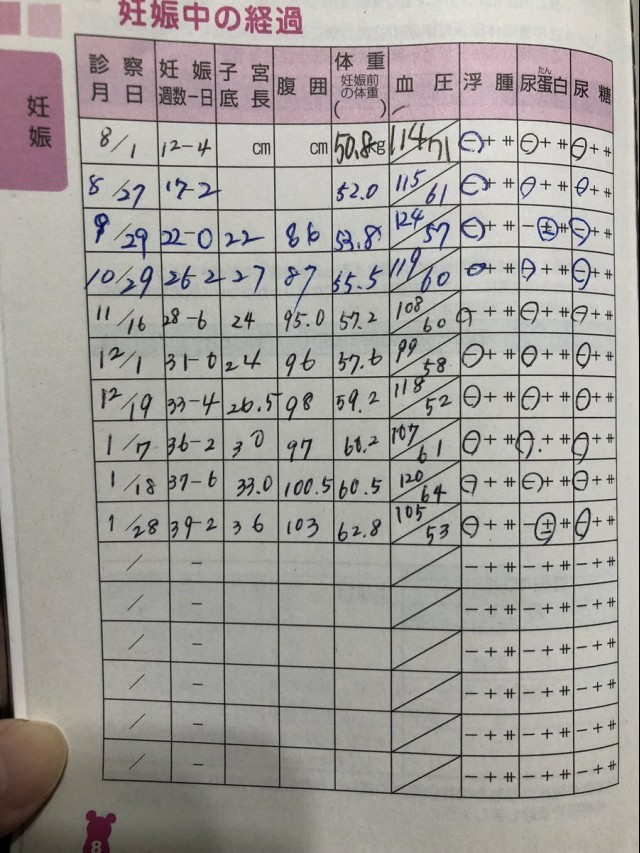 妊娠中の経過
妊娠
診察月日 妊娠週数-日 子宮底長 腹囲 体重 妊娠前の体重 ( ) 血圧 浮腫 尿蛋白 たん 尿糖
8/1 12-4 cm cm 50.8kg 114/71 - + ⧺ - + ⧺ - + ⧺
8/27 17-2 52.0 115/61 - + ⧺ - + ⧺ - + ⧺
9/29 22-0 22 86 53.8 124/57 - + ⧺ - ± ⧺ - + ⧺
10/29 26-2 27 87 55.5 119/60 - + ⧺ - + ⧺ - + ⧺
11/16 28-6 24 95.0 57.2 108/60 - + ⧺ - + ⧺ - + ⧺
12/1 31-0 24 96 57.6 99/58 - + ⧺ - + ⧺ - + ⧺
12/19 33-4 26.5 98 59.2 118/52 - + ⧺ - + ⧺ - + ⧺
1/7 36-2 30 97 60.2 107/61 - + ⧺ - + ⧺ - + ⧺
1/18 37-6 33.0 100.5 60.5 120/64 - + ⧺ - + ⧺ - + ⧺
1/28 39-2 36 103 62.8 105/53 - + ⧺ - ± ⧺ - + ⧺
/ - / - + ⧺ - + ⧺ - + ⧺
/ - / - + ⧺ - + ⧺ - + ⧺
/ - / - + ⧺ - + ⧺ - + ⧺
/ - / - + ⧺ - + ⧺ - + ⧺
/ - / - + ⧺ - + ⧺ - + ⧺
/ - / - + ⧺ - + ⧺ - + ⧺
8